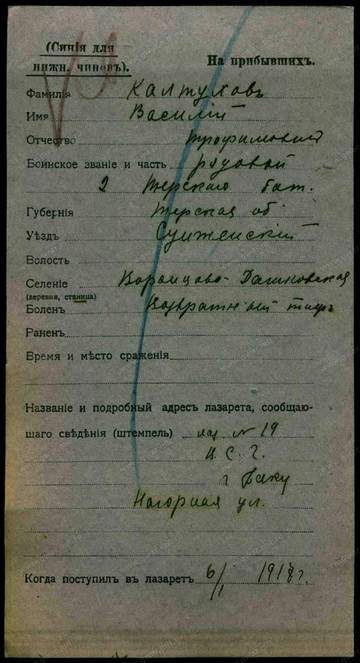 (Синія для нижн. чиновъ).
На прибывшихъ.
Фамилія Калтуховъ
Имя Василій
Отчество Трофимович
Воинское званіе и часть рядовой
2 Терскаго бат.
Губернія Терская об
Уѣздъ Сунженскій
Волость
Селеніе Воронцово-Дашковская
(деревня, станица)
Боленъ Возвратный тиф
Раненъ
Время и мѣсто сраженія
Названіе и подробный адресъ лазарета, сообщаю-
щаго свѣдѣнія (штемпель) лаз № 19
г Баку
Нагорная ул.
Когда поступилъ въ лазаретъ 6/I 1918 г.